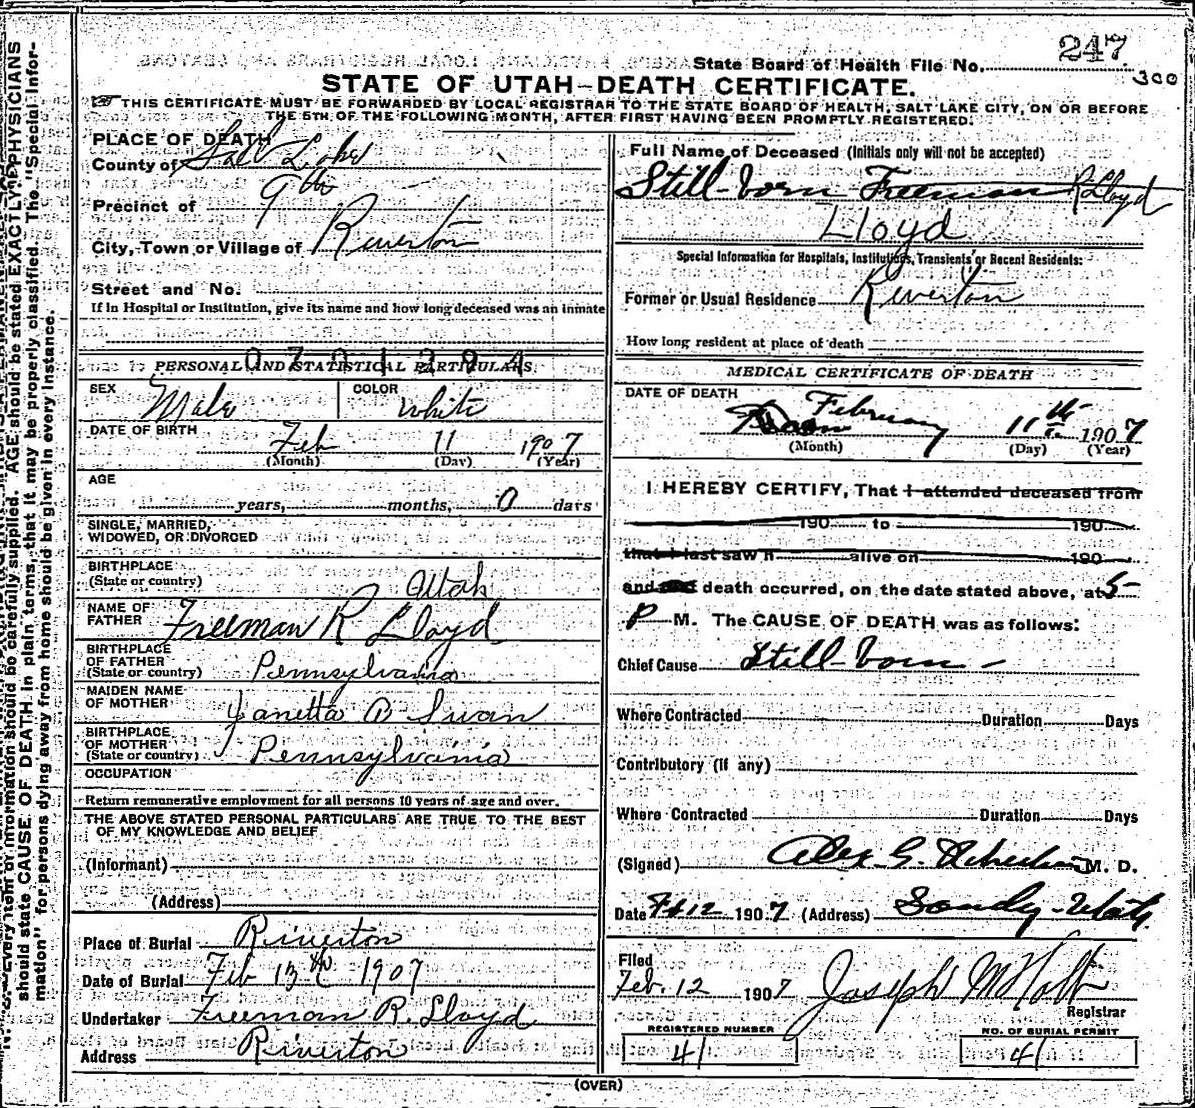 247
State Board of Health File No.
300
STATE OF UTAH—DEATH CERTIFICATE.
THIS CERTIFICATE MUST BE FORWARDED BY LOCAL REGISTRAR TO THE STATE BOARD OF HEALTH, SALT LAKE CITY, ON OR BEFORE
THE 5TH OF THE FOLLOWING MONTH, AFTER FIRST HAVING BEEN PROMPTLY REGISTERED.
PLACE OF DEATH
County of Salt Lake
Precinct of 9th
City, Town or Village of Riverton
Street and No.
If in Hospital or Institution, give its name and how long deceased was an inmate
0701284
PERSONAL AND STATISTICAL PARTICULARS
SEX Male COLOR White
DATE OF BIRTH Feb 11 1907
(Month) (Day) (Year)
AGE
years, months, 0 days
SINGLE, MARRIED,
WIDOWED, OR DIVORCED
BIRTHPLACE
(State or country) Utah
NAME OF
FATHER Freeman R Lloyd
BIRTHPLACE
OF FATHER
(State or country) Pennsylvania
MAIDEN NAME
OF MOTHER Janetta B Swan
BIRTHPLACE
OF MOTHER
(State or country) Pennsylvania
OCCUPATION
Return remunerative employment for all persons 10 years of age and over.
THE ABOVE STATED PERSONAL PARTICULARS ARE TRUE TO THE BEST
OF MY KNOWLEDGE AND BELIEF
(Informant)
(Address)
Place of Burial Riverton
Date of Burial Feb 13th 1907
Undertaker Freeman R. Lloyd
Address Riverton
Full Name of Deceased (Initials only will not be accepted)
Still-born Freeman R Lloyd
Lloyd
Special Information for Hospitals, Institutions, Transients or Recent Residents:
Former or Usual Residence Riverton
How long resident at place of death
MEDICAL CERTIFICATE OF DEATH
DATE OF DEATH
February 11th 1907
(Month) (Day) (Year)
I HEREBY CERTIFY, That I attended deceased from
190 to 190
that I last saw h alive on 190
and death occurred, on the date stated above, at 5
P M. The CAUSE OF DEATH was as follows:
Chief Cause Still-born -
Where Contracted Duration Days
Contributory (if any)
Where Contracted Duration Days
(Signed) Alex G. M. D.
Date Feb 12 1907 (Address) Sandy - Utah.
Filed
Feb. 12 1907 Joseph M Holt
Registrar
REGISTERED NUMBER
41
NO. OF BURIAL PERMIT
41
(OVER)
Every item of information should be carefully supplied. AGE should be stated EXACTLY. PHYSICIANS
should state CAUSE OF DEATH in plain terms, that it may be properly classified. The "Special Infor-
mation" for persons dying away from home should be given in every instance.